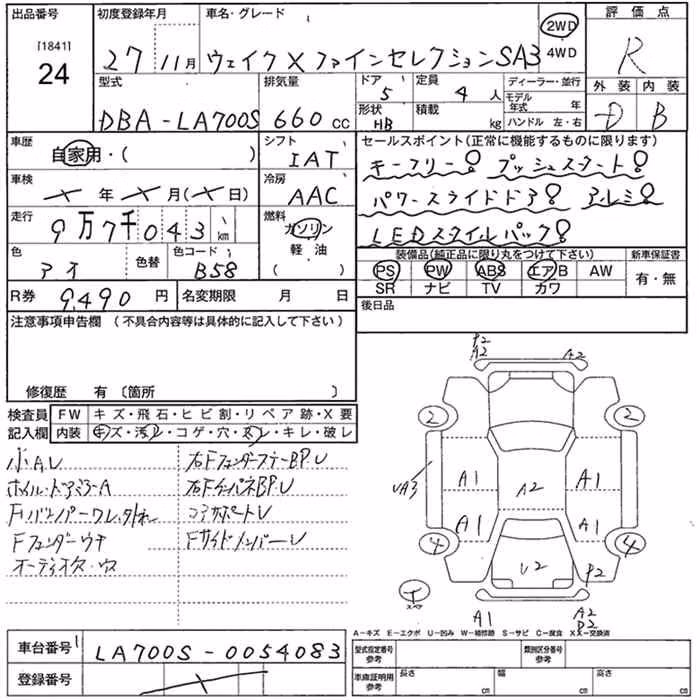 出品番号 初度登録年月 車名・グレード 評価点
[1841] 24
27 11月 ウェイク X ファインセレクションSA3
2WD 4WD
R
型式 排気量 ドア 定員 ディーラー・並行 外装 内装
DBA-LA700S 660cc 5 4人 モデル年式 年 D B
形状 HB 積載 kg ハンドル 左・右
車歴 シフト セールスポイント(正常に機能するものに限ります)
自家用・( ) IAT キーフリー! プッシュスタート!
車検 冷房
×年×月(×日) AAC パワースライドドア! アルミ!
走行 燃料
9万7千043km ガソリン LEDスタイルパック!
色 色替 色コード 軽油
アオ B58 ( )
装備品(純正品に限り丸をつけて下さい) 新車保証書
PS PW ABS エアB AW 有・無
SR ナビ TV カワ
R券 9,490円 名変期限 月 日
後日品
注意事項申告欄(不具合内容等は具体的に記入して下さい)
修復歴 有〔箇所 〕
検査員 FW キズ・飛石・ヒビ割・リペア跡・X要
記入欄 内装 キズ・汚レ・コゲ・穴・スレ・キレ・破レ
小A.U 右FフェンダーステーBP.U
ホイル・ドアミラーA
Fバンパークレ コアサポートU
Fフェンダーウキ FサイドメンバーU
A2
A2 A2
2 2
A1 A1
UA3 A2
A1 A1
4 4
U2 P2
A1 A2
P2
A-キズ E-エクボ U-凹み W-補修跡 S-サビ C-腐食 XX-交換済
車台番号 LA700S-0054083
型式指定番号 参考 類別区分番号 参考
登録番号 ×
車庫証明用 参考 長さ cm 幅 cm 高さ cm